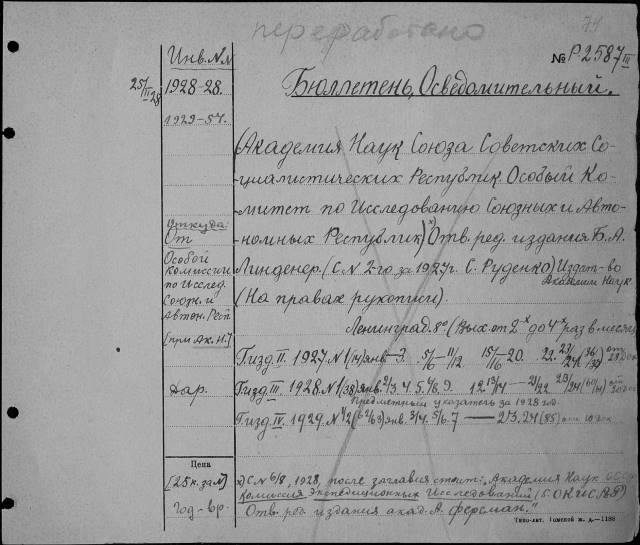 переработано
71
№ Р.2587 III
Инв. №№
25/II 28
1928-28.
1929-57.
Бюллетень, Осведомительный.
(Академия Наук Союза Советских Со-
циалистических Республик. Особый Ко-
митет по Исследованию Союзных и Авто-
номных Республик)х) Отв. ред. издания Б. А.
Линденер. (С N 2-го за 1927 г. С. Руденко) Издат-во
Академии Наук
(На правах рукописи).
Ленинград. 8º (Вых. от 2-х до 4-х раз в месяц
Откуда:
От
Особой
комиссии
по Исслед.
Союзн. и
Автон. Респ
[при Ак. Н.]
Дар.
Г. изд. II. 1927. N 1(14) янв. - 3. 5/6 - 11/2 15/16 - 20. 22. 23/24 (36/37)
Г. изд. III. 1928. N 1(38) янв. 2/3 4 5. 9. 12 - 21/22 23/24
Предметный указатель за 1928 год
Г. изд. IV. 1929. N 1/2 (62/63) янв. 3/4. 5/6. 7 — 23. 24 (85)
Цена
[25 к. за N]
год-вр.
х) С N 6/8, 1928, после заглавия стоит: „Академия Наук СССР
Комиссия Экспедиционных Исследований
Отв. ред. издания акад. А. Ферсман."
Типо-лит. Томской ж. д.—1188